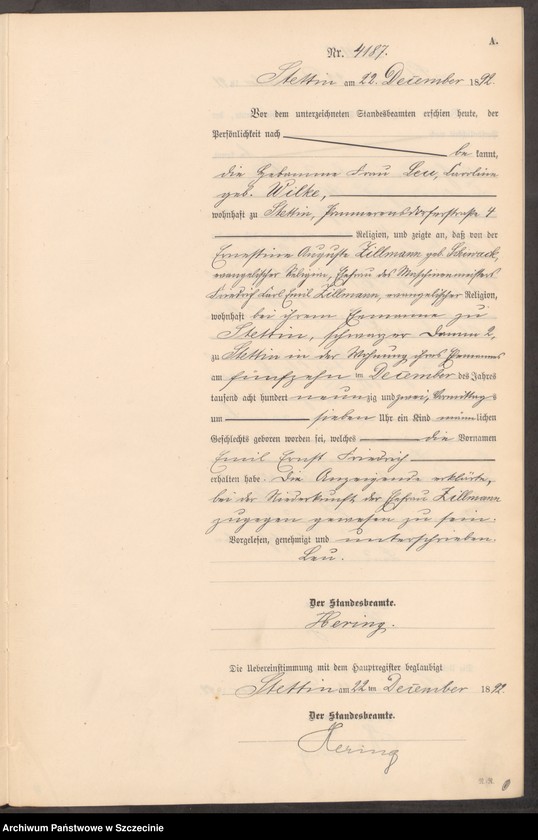 A.
Nr. 4187.
Stettin am 22. December 1892.
Vor dem unterzeichneten Standesbeamten erschien heute, der
Persönlichkeit nach
be kannt,
die Hebamme Frau Leu, Karline
geb. Wilke,
wohnhaft zu Stettin, Pommerensdorferstraße 4
Religion, und zeigte an, daß von der
Ernestine Auguste Zillmann geb. Schwack,
evangelischer Religion, Ehefrau des Maschinenmeisters
Friedrich Carl Emil Zillmann, evangelischer Religion,
wohnhaft bei ihrem Ehemanne zu
Stettin, schwarzer Damm 2,
zu Stettin in der Wohnung ihres Ehemannes
am fünfzehn ten December des Jahres
tausend acht hundert neunzig und zwei, Vormittags
um sieben Uhr ein Kind männlichen
Geschlechts geboren worden sei, welches die Vornamen
Emil Ernst Friedrich
erhalten habe. Die Anzeigende erklärte,
bei der Niederkunft der Ehefrau Zillmann
zugegen gewesen zu sein.
Vorgelesen, genehmigt und unterschrieben.
Leu.
Der Standesbeamte.
Hering.
Die Uebereinstimmung mit dem Hauptregister beglaubigt
Stettin am 22 ten December 1892.
Der Standesbeamte.
Hering
Archiwum Państwowe w Szczecinie